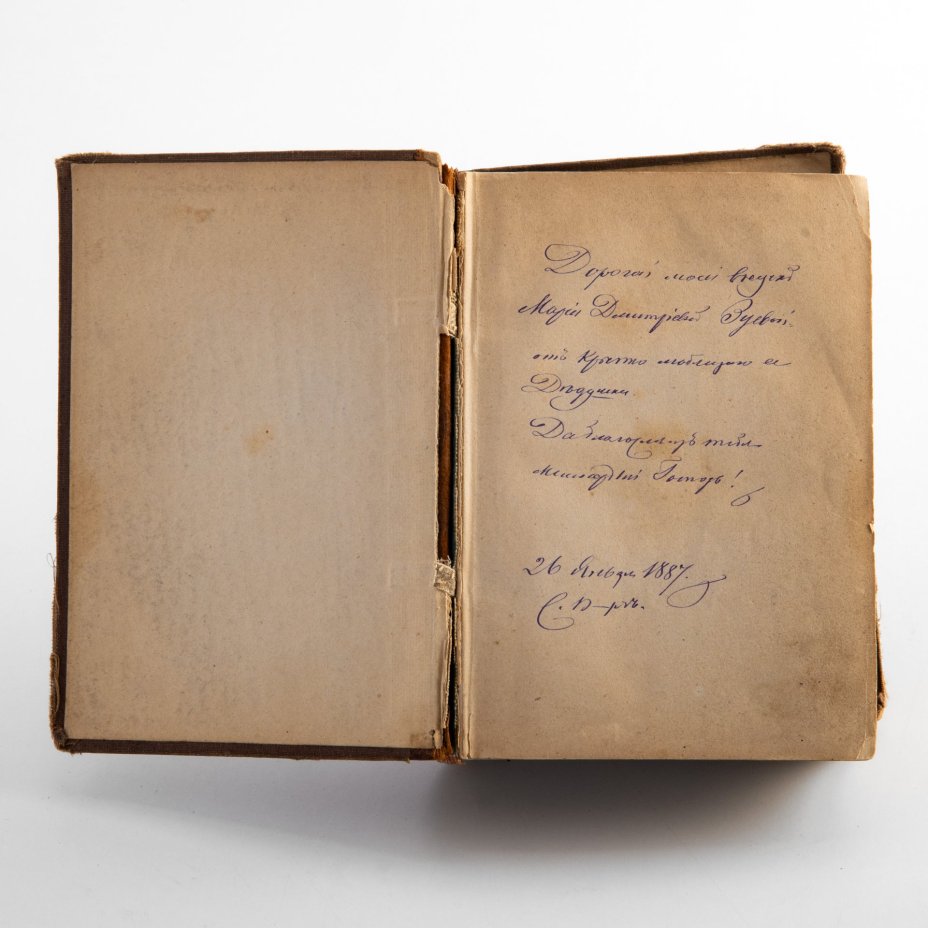 Дорогой моей внучкѣ
Маріи Дмитріевнѣ Зуевой
отъ крѣпко любящаго ее
Дѣдушки
Да благословитъ тебя
милосердый Господь!
26 Января 1887.
С. П—ргъ.